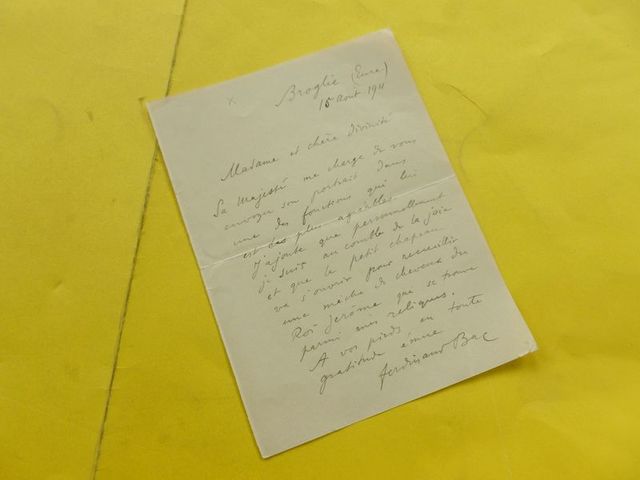 Broglie (Eure)
15 août 1911
Madame et chère divinité
Sa Majesté me charge de vous
envoyer son portrait dans
une des fonctions qui lui
est des plus agréables.
J'ajoute que personnellement
je suis au comble de la joie
et que le petit chapeau
va s'ouvrir pour recueillir
une mèche de cheveux du
Roi Jérôme que se trouve
parmi mes reliques.
A vos pieds, en toute
gratitude émue
Ferdinand Bac